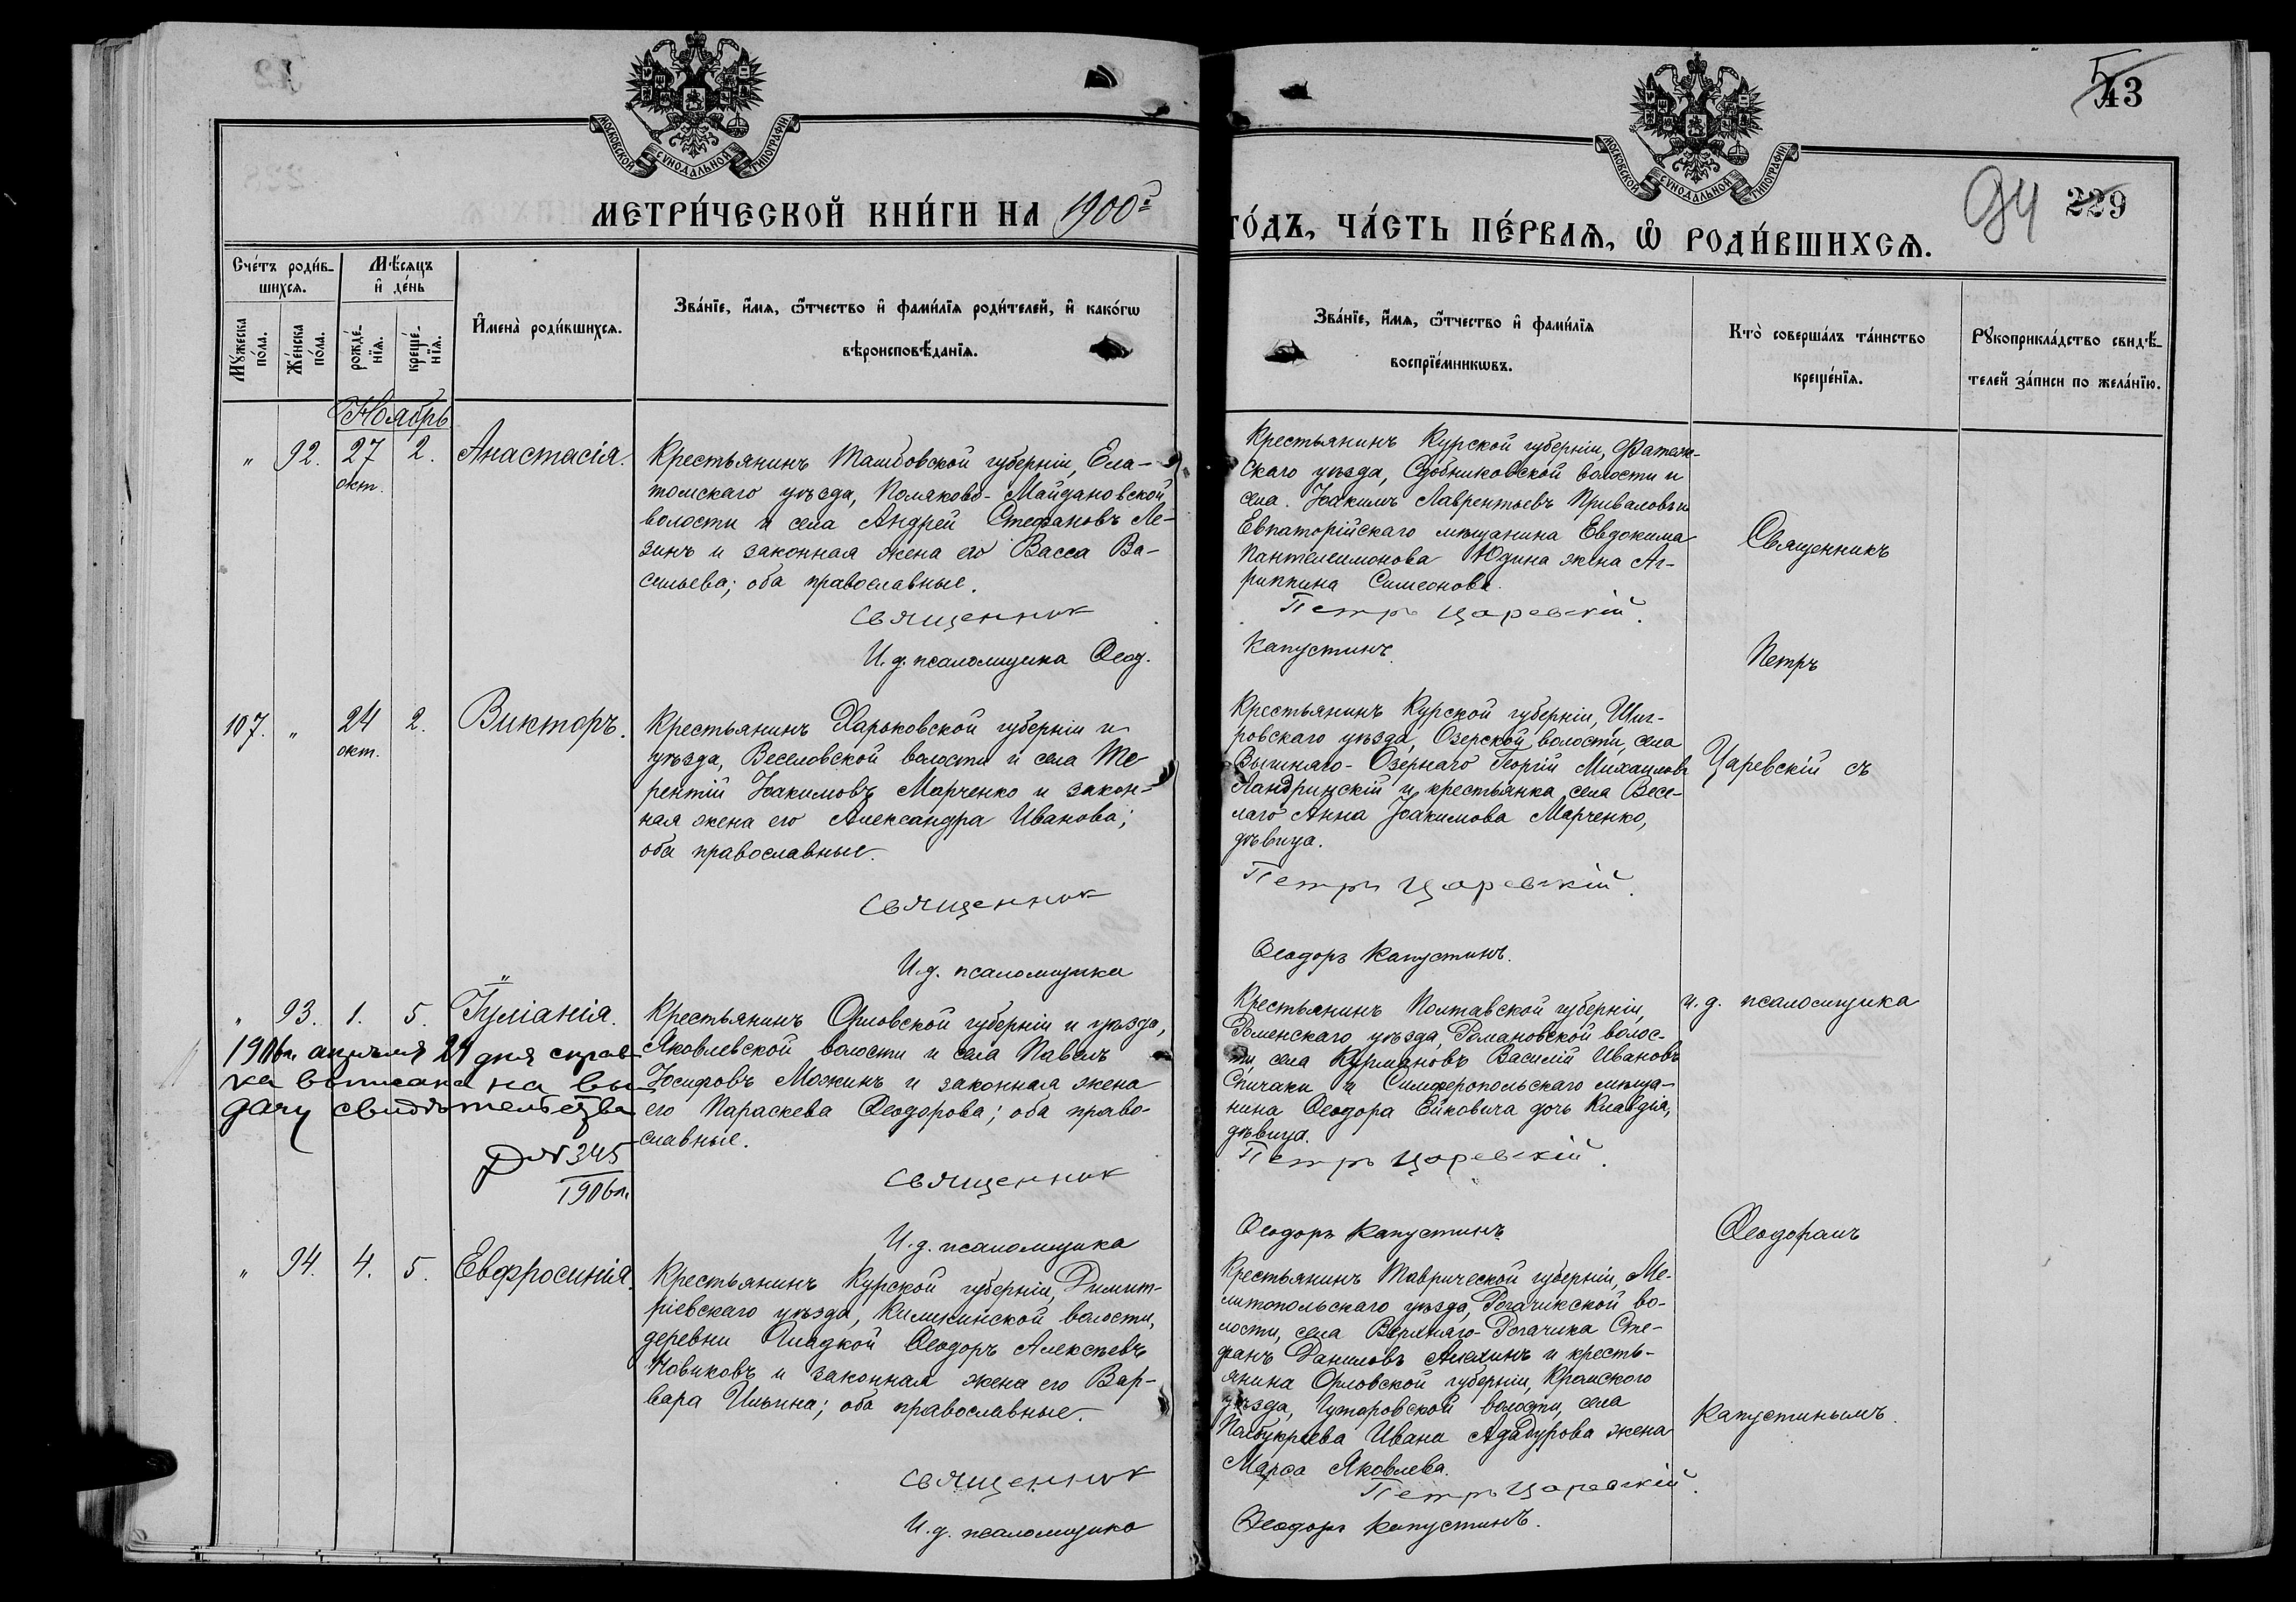 43
5
МОСКОВСКОЙ СѴНОДАЛЬНОЙ ТИПОГРАФІИ
МОСКОВСКОЙ СѴНОДАЛЬНОЙ ТИПОГРАФІИ
МЕТРИ́ЧЕСКОЙ КНИ́ГИ НА 1900й
ГО́ДЪ, ЧА́СТЬ ПЕ́РВАѦ, Ѽ РОДИ́ВШИХСѦ.
94 229
Сче́тъ роди́в-
шихсѧ.
Мꙋ́жеска по́ла.
Же́нска по́ла.
Мѣ́сѧцъ
и҆ де́нь
рожде́-
нїѧ.
креще́-
нїѧ.
И҆мена̀ роди́вшихсѧ.
Зва́нїе, и҆́мѧ, ѻ҆́тчество и҆ фами́лїѧ роди́телей, и҆ како́гѡ
вѣроисповѣ́данїѧ.
Зва́нїе, и҆́мѧ, ѻ҆́тчество и҆ фами́лїѧ
воспрїе́мникѡвъ.
Кто̀ соверша́лъ та́инство
креще́нїѧ.
Рꙋкоприкла́дство свидѣ́-
телей за́писи по жела́нїю.
Ноябрь
" 92. 27 2. Анастасія.
окт.
Крестьянинъ Тамбовской губерніи, Ела-
томскаго уѣзда, Поляково-Майдановской
волости и села Андрей Стефановъ Ле-
зинъ и законная жена его Васса Ва-
сильева; оба православные.
Священник
И. д. псаломщика Ѳеод.
Крестьянинъ Курской губерніи, Фатеж-
скаго уѣзда, Сдобниковской волости и
села Іоакимъ Лаврентьевъ Приваловъ и
Евпаторійскаго мѣщанина Евдокима
Пантелеимонова Юдина жена Аг-
риппина Симеонова.
Петръ Царевскій.
Капустинъ.
Священникъ
Петръ
107. " 24 2. Викторъ.
окт.
Крестьянинъ Харьковской губерніи и
уѣзда, Веселовской волости и села Те
рентій Іоакимовъ Марченко и закон-
ная жена его Александра Иванова;
оба православные.
Священник
И. д. псаломщика
Крестьянинъ Курской губерніи, Щиг-
ровскаго уѣзда, Озерской волости, села
Вышняго-Озернаго Георгій Михаиловъ
Ландринскій и крестьянка села Весе-
лаго Анна Іоакимова Марченко,
дѣвица.
Петръ Царевскій.
Ѳеодоръ Капустинъ.
Царевскій съ
" 93. 1. 5. Іуліанія.
1906 г. апрѣля 24 дня справ
ка выписана на вы
дачу свидѣтельства
Д № 345
1906 г.
Крестьянинъ Орловской губерніи и уѣзда,
Яковлевской волости и села Павелъ
Іосифовъ Можинъ и законная жена
его Параскева Ѳеодорова; оба право-
славные.
Священник
И. д. псаломщика
Крестьянинъ Полтавской губерніи,
Роменскаго уѣзда, Романовской волос-
ти, села Курмановъ Василій Ивановъ
Спичаки и Симферопольскаго мѣща-
нина Ѳеодора Ейковича дочь Клавдія,
дѣвица.
Петръ Царевскій.
Ѳеодоръ Капустинъ
и. д. псаломщика
Ѳеодоромъ
" 94. 4. 5. Евфросинія.
Крестьянинъ Курской губерніи, Димит-
ріевскаго уѣзда, Киликинской волости,
деревни Гладкой Ѳеодоръ Алексѣевъ
Новиковъ и законная жена его Вар-
вара Ильина; оба православные.
Священник
И. д. псаломщика
Крестьянинъ Таврической губерніи, Ме-
литопольскаго уѣзда, Рогачикской во-
лости, села Верхняго-Рогачика Сте-
фанъ Даниловъ Алехинъ и кресть-
янина Орловской губерніи, Кромского
уѣзда, Гуторовской волости, села
Ивана Ададурова жена
Марѳа Яковлева.
Петръ Царевскій.
Ѳеодоръ Капустинъ.
Капустинымъ.